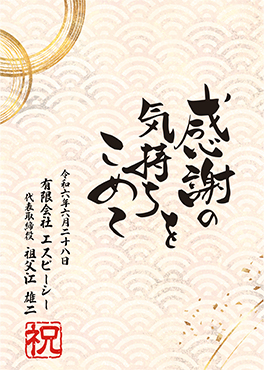 感謝の
気持ちを
こめて
令和六年六月二十八日
有限会社 エスピーシー
代表取締役 祖父江 雄二
祝